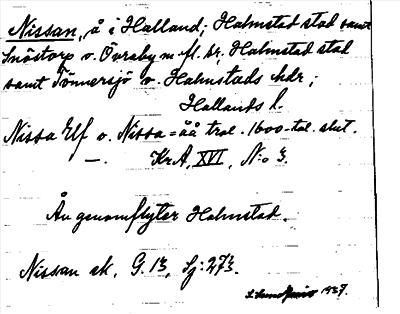 Nissan, å i Halland; Halmstad stad samt
Snöstorp o. Övraby m. fl. sr, Halmstad stad
samt Tönnersjö o. Halmstads hdr;
Hallands l.
Nissa Elf o. Nissa=åå trol. 1600-tal. slut.
—. Kr.A, XVI, N:o 3.
Ån genomflyter Halmstad.
Nissan ek. G. 13, Sj: 273.
1937.